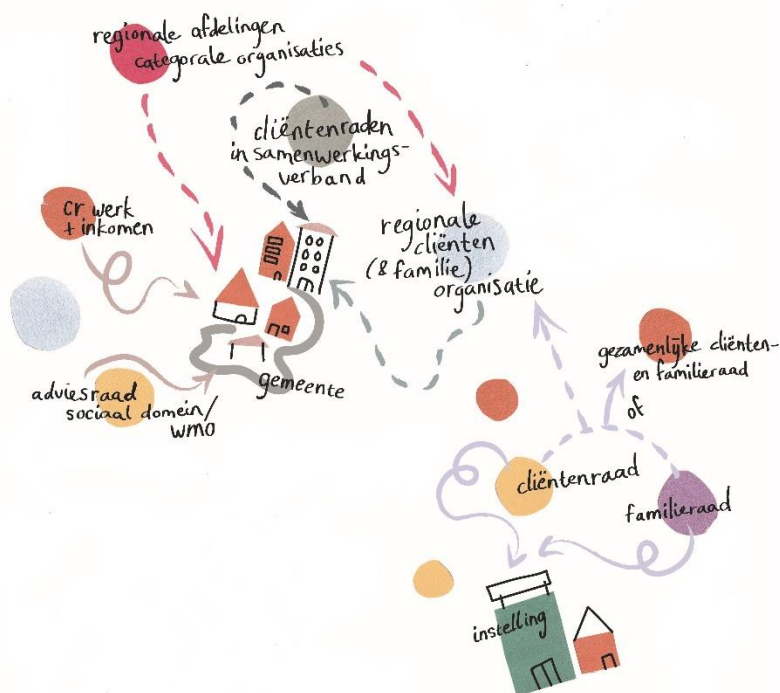 regionale afdelingen
categorale organisaties
cliëntenraden
in samenwerkings-
verband
cr werk
+ inkomen
regionale
cliënten
(& familie)
organisatie
gemeente
adviesraad
sociaal domein/
WMO
gezamenlijke cliënten-
en familieraad
of
cliëntenraad
familieraad
instelling